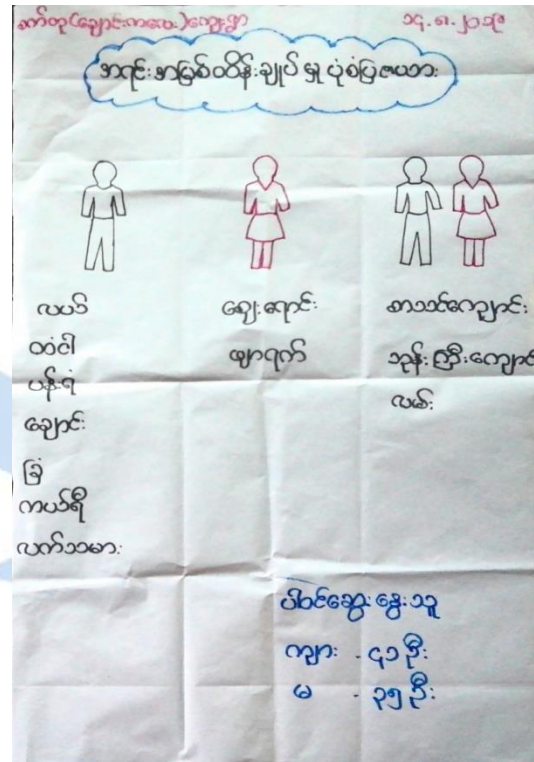 ဓက်တူ(ချောင်းကလေး)ကျေးရွာ
၁၄.၈.၂၀၁၉
အရင်းအမြစ်ထိန်းချုပ်မှုပုံစံပြဇယား
လယ်
တံငါ
ပန်းရံ
ချောင်း
ခြံ
ကယ်ရီ
လက်သမား
ဈေးရောင်း
ဖျာရက်
စာသင်ကျောင်း
ဘုန်းကြီးကျောင်း
လမ်း
ပါဝင်ဆွေးနွေးသူ
ကျား - ၄၁ဦး
မ - ၃၅ဦး